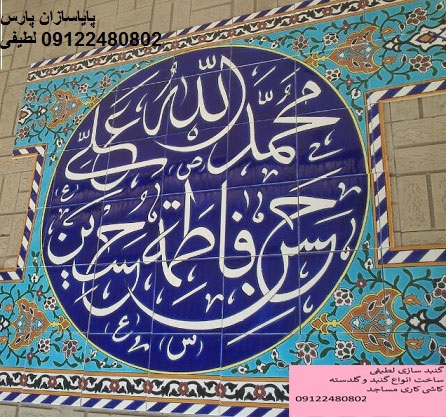 پایاسازان پارس
09122480802 لطیفی
الله محمد علی
فاطمة حسن حسین
گنبد سازی لطیفی
ساخت انواع گنبد و گلدسته
کاشی کاری مساجد
09122480802